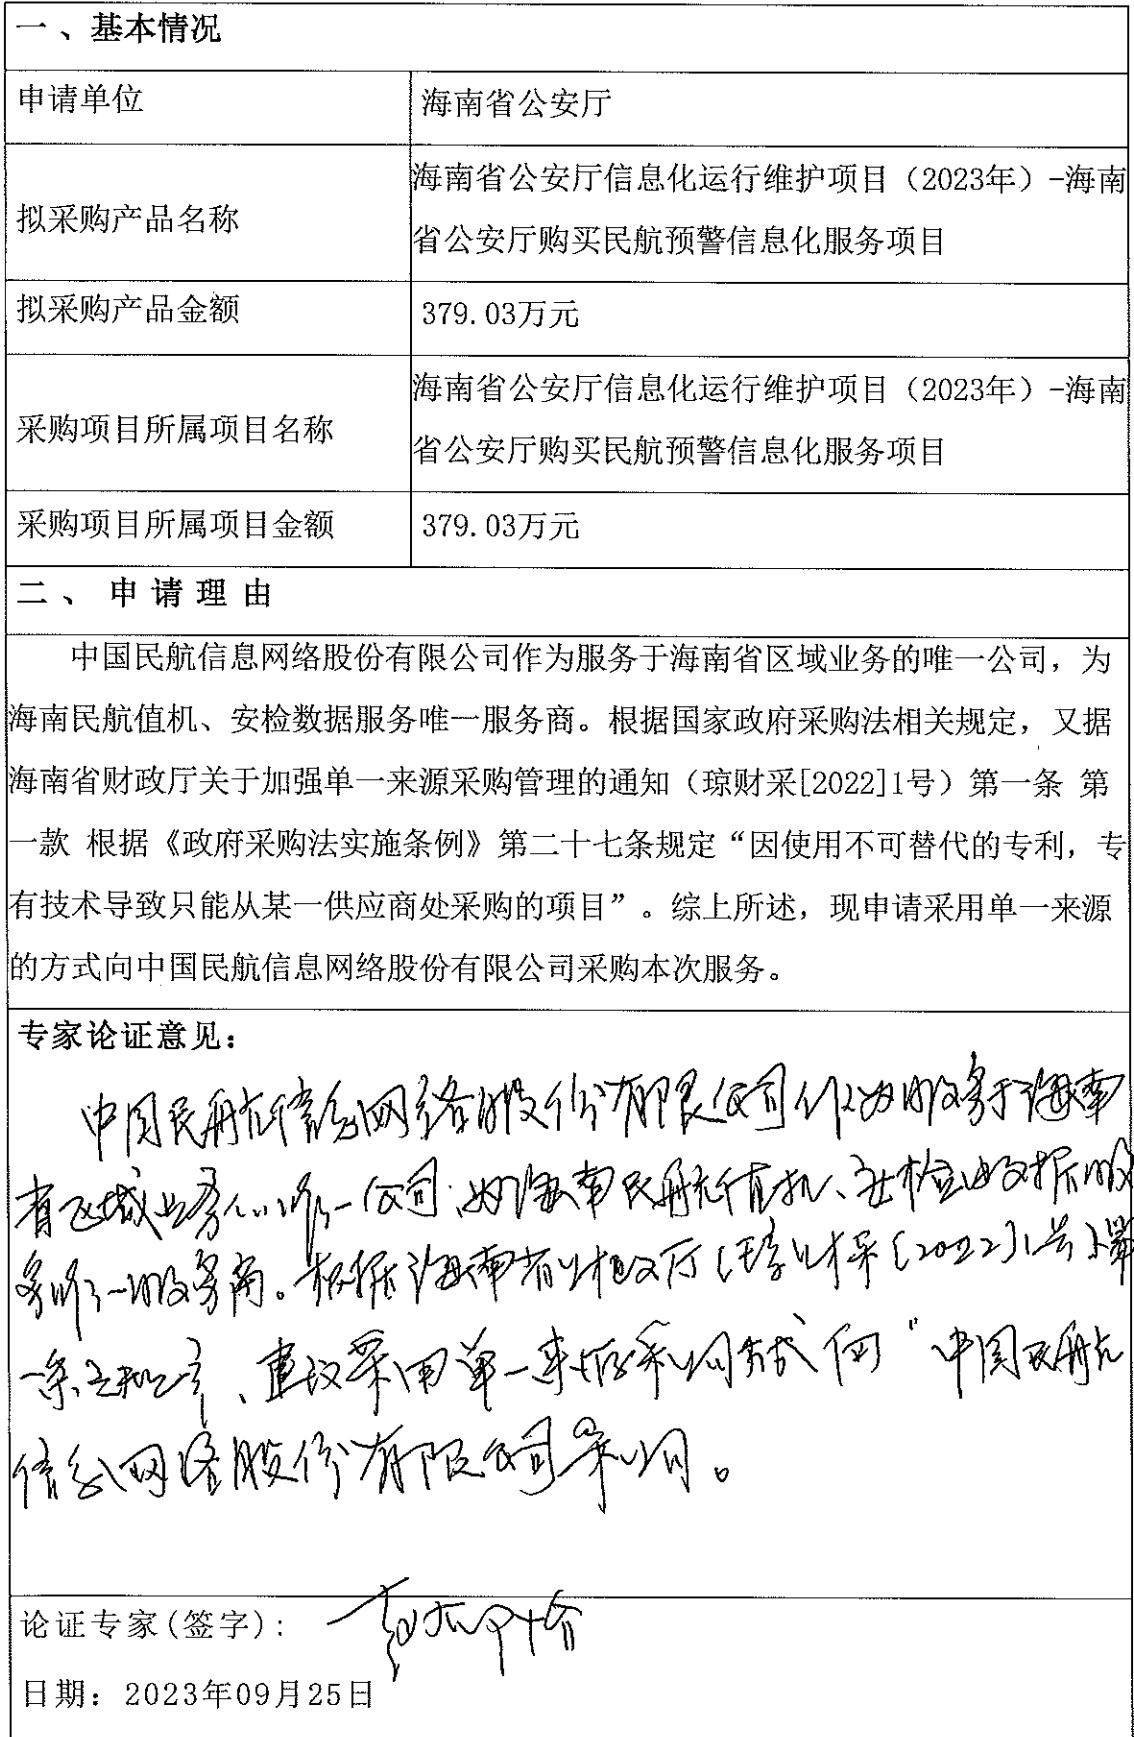 一、基本情况
申请单位
海南省公安厅
拟采购产品名称
海南省公安厅信息化运行维护项目（2023年）-海南
省公安厅购买民航预警信息化服务项目
拟采购产品金额
379.03万元
采购项目所属项目名称
海南省公安厅信息化运行维护项目（2023年）-海南
省公安厅购买民航预警信息化服务项目
采购项目所属项目金额
379.03万元
二、申请理由
中国民航信息网络股份有限公司作为服务于海南省区域业务的唯一公司，为
海南民航值机、安检数据服务唯一服务商。根据国家政府采购法相关规定，又据
海南省财政厅关于加强单一来源采购管理的通知（琼财采[2022]1号）第一条 第
一款 根据《政府采购法实施条例》第二十七条规定“因使用不可替代的专利，专
有技术导致只能从某一供应商处采购的项目”。综上所述，现申请采用单一来源
的方式向中国民航信息网络股份有限公司采购本次服务。
专家论证意见：
中国民航信息网络股份有限公司作为服务于海南
省区域业务的唯一公司，为海南民航值机、安检数据服
务唯一服务商。根据海南省财政厅（琼财采〔2022〕1号）第
一条 建议采用单一来源采购方式向“中国民航
信息网络股份有限公司采购。
论证专家(签字)：
日期：2023年09月25日